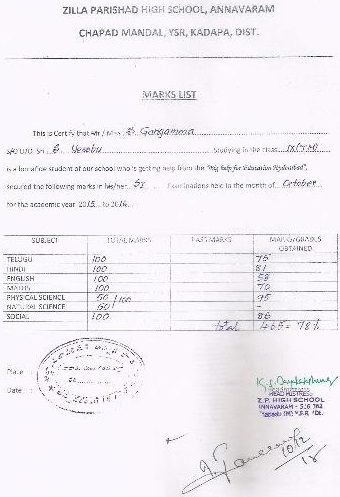 ZILLA PARISHAD HIGH SCHOOL, ANNAVARAM
CHAPAD MANDAL, YSR, KADAPA, DIST.
MARKS LIST
This is Certify that Mr / Miss B. Gangamma
S/O D/O Sri B. Yesobu Studying in the class
is a bonafice student of our school who is getting help from the "Big help for Education Hyderabad",
secured the following marks in his/her SI Examinations held in the month of October
for the academic year 2015 to 2016
SUBJECT TOTAL MARKS PASS MARKS MARKS/GRADES OBTAINED
TELOGU 100 75
HINDI 100 81
ENGLISH 100 58
MATHS 100 70
PHYSICAL SCIENCE 50 / 100 95
NATURAL SCIENCE 50 -
SOCIAL 100 86
total 465 = 78%
Place
Date
Headmistress
HEAD MISTRESS
Z.P. HIGH SCHOOL
ANNAVARAM - 516 362
10/12
15